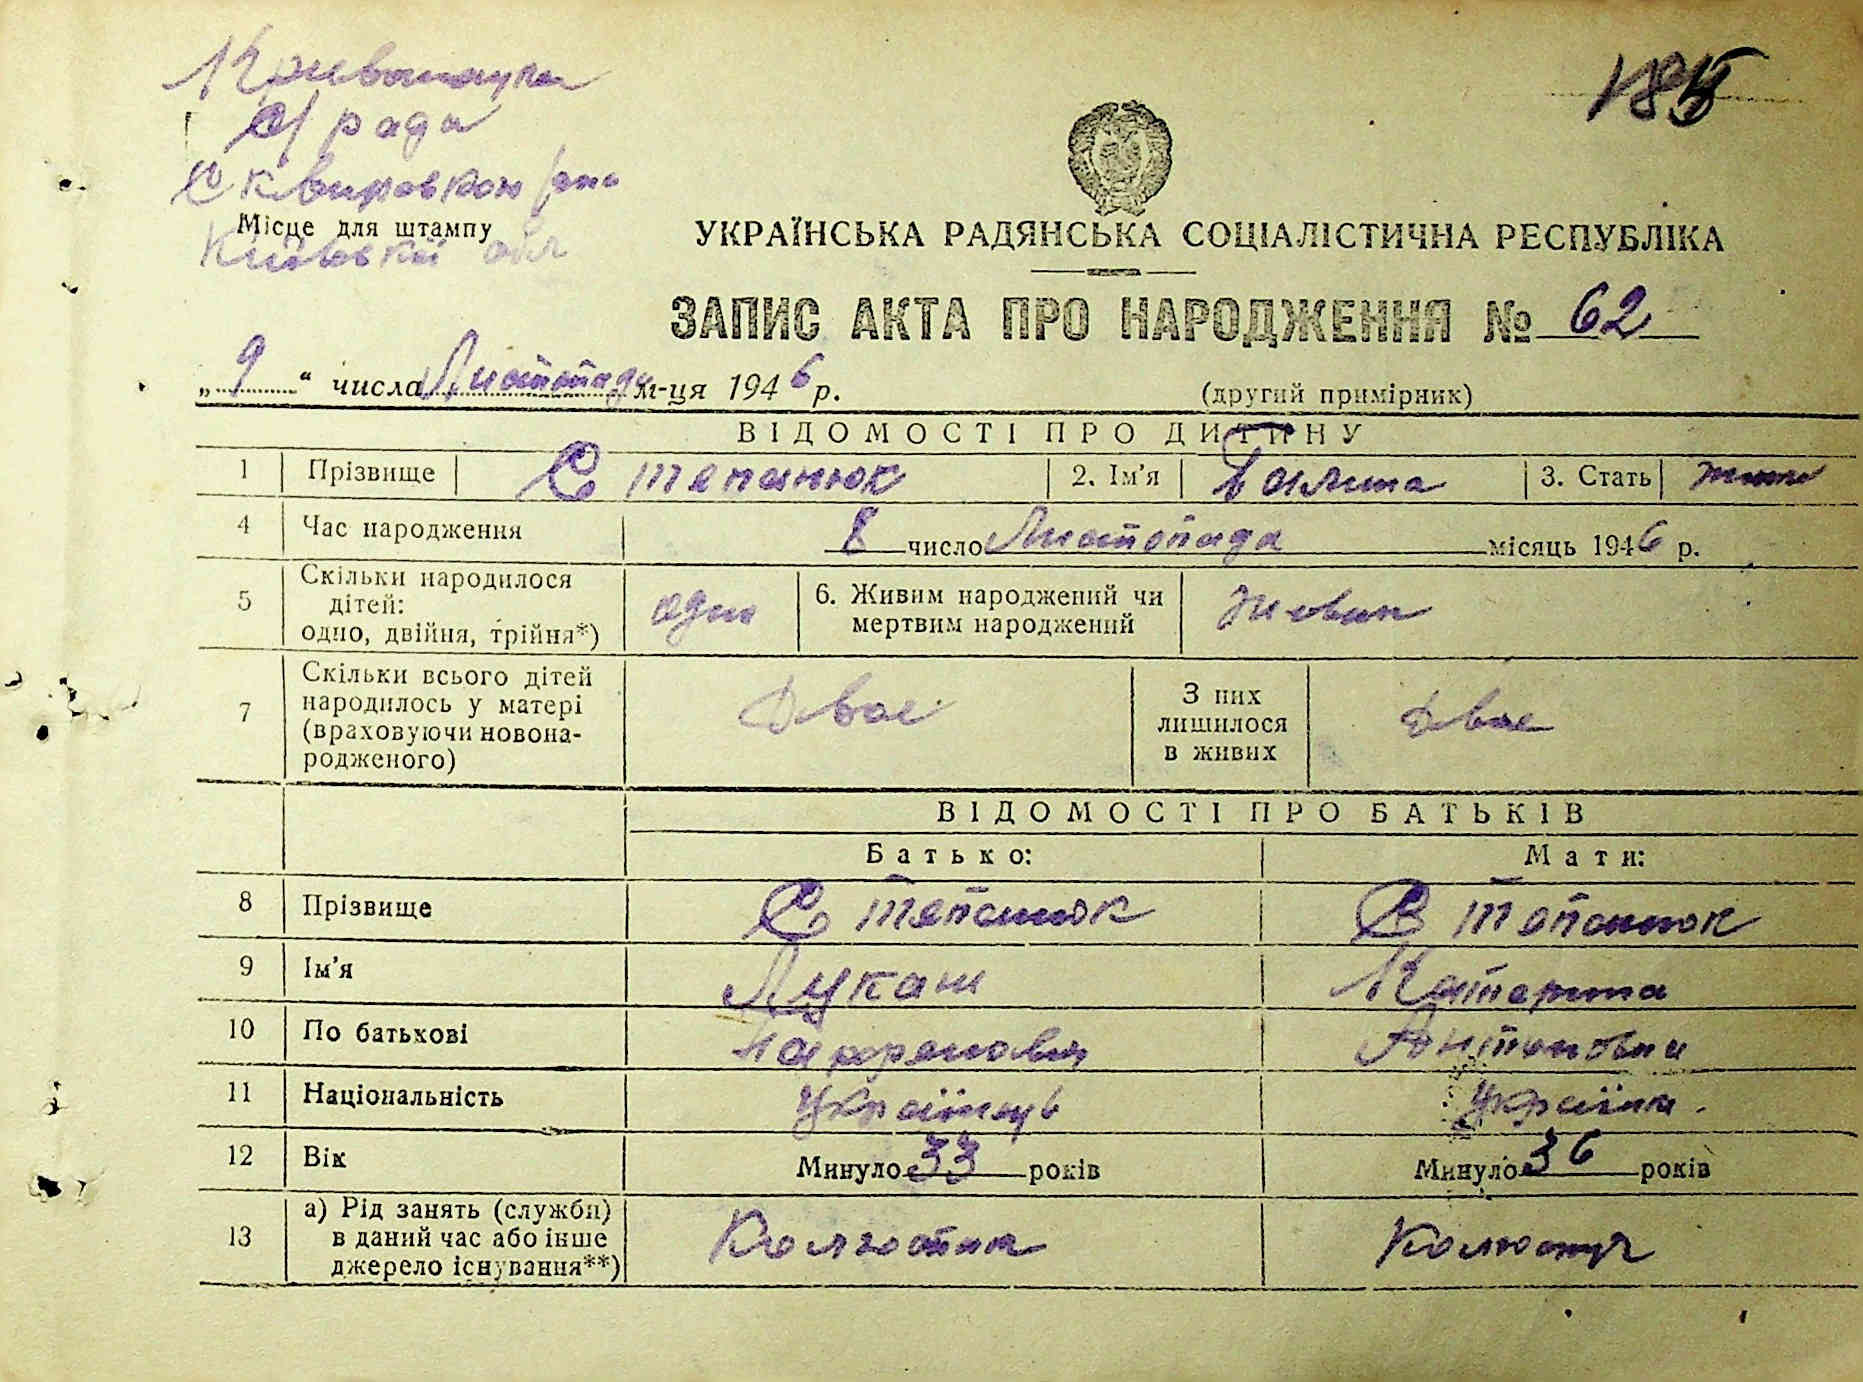 с/рада
Місце для штампу
Київської обл
УКРАЇНСЬКА РАДЯНСЬКА СОЦІАЛІСТИЧНА РЕСПУБЛІКА
ЗАПИС АКТА ПРО НАРОДЖЕННЯ № 62
„ 9 “ числа Листопада м-ця 1946 р.
(другий примірник)
ВІДОМОСТІ ПРО ДИТИНУ
1 Прізвище Степанюк 2. Ім’я Галина 3. Стать
4 Час народження 8 число Листопада місяць 1946 р.
5 Скільки народилося дітей: одно, двійня, трійня*) одно 6. Живим народжений чи мертвим народжений
7 Скільки всього дітей народилось у матері (враховуючи новонародженого) Двое З них лишилося в живих Двое
ВІДОМОСТІ ПРО БАТЬКІВ
Батько: Мати:
8 Прізвище Степанюк Степанюк
9 Ім’я Лукаш Катерина
10 По батькові Антоновна
11 Національність Українець Українка
12 Вік Минуло 33 років Минуло 36 років
13 а) Рід занять (служби) в даний час або інше джерело існування**)